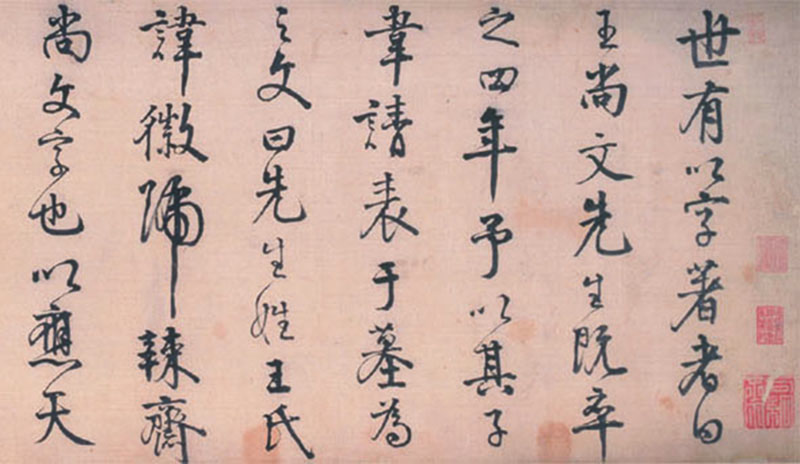 世有以字著者曰
王尚文先生既卒
之四年予以其子
韋請表于墓為
之文曰先生姓王氏
諱徽隔辣齋
尚文字也以應天